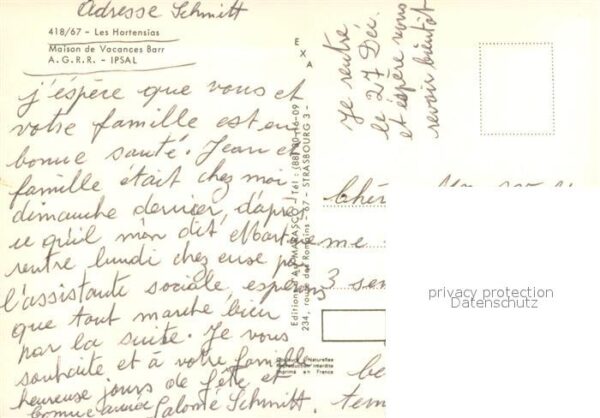 Adresse Schmitt
418/67 - Les Hortensias
Maison de Vacances Barr
A.G.R.R. - IPSAL
j'éspère que vous et
votre famille est en
bonne santé. Jean et
famille était chez moi
dimanche dernier, d'après
ce qu'il m'on dit Martine
rentre lundi chez euse par
l'assistante sociale, espérons
que tout marche bien
par la suite. Je vous
souhaite et à votre famille
heureuse jours de fête et
bonne année Salomé Schmitt.
EXA
234, route des Romains - 67 - STRASBOURG 3 -
Couleurs Naturelles
Reproduction interdite
Imprimé en France
Je rentre
le 27 Déc.
et éspère vous
revoir bientôt
Chèr
me
3 sem
be
tem
privacy protection
Datenschutz